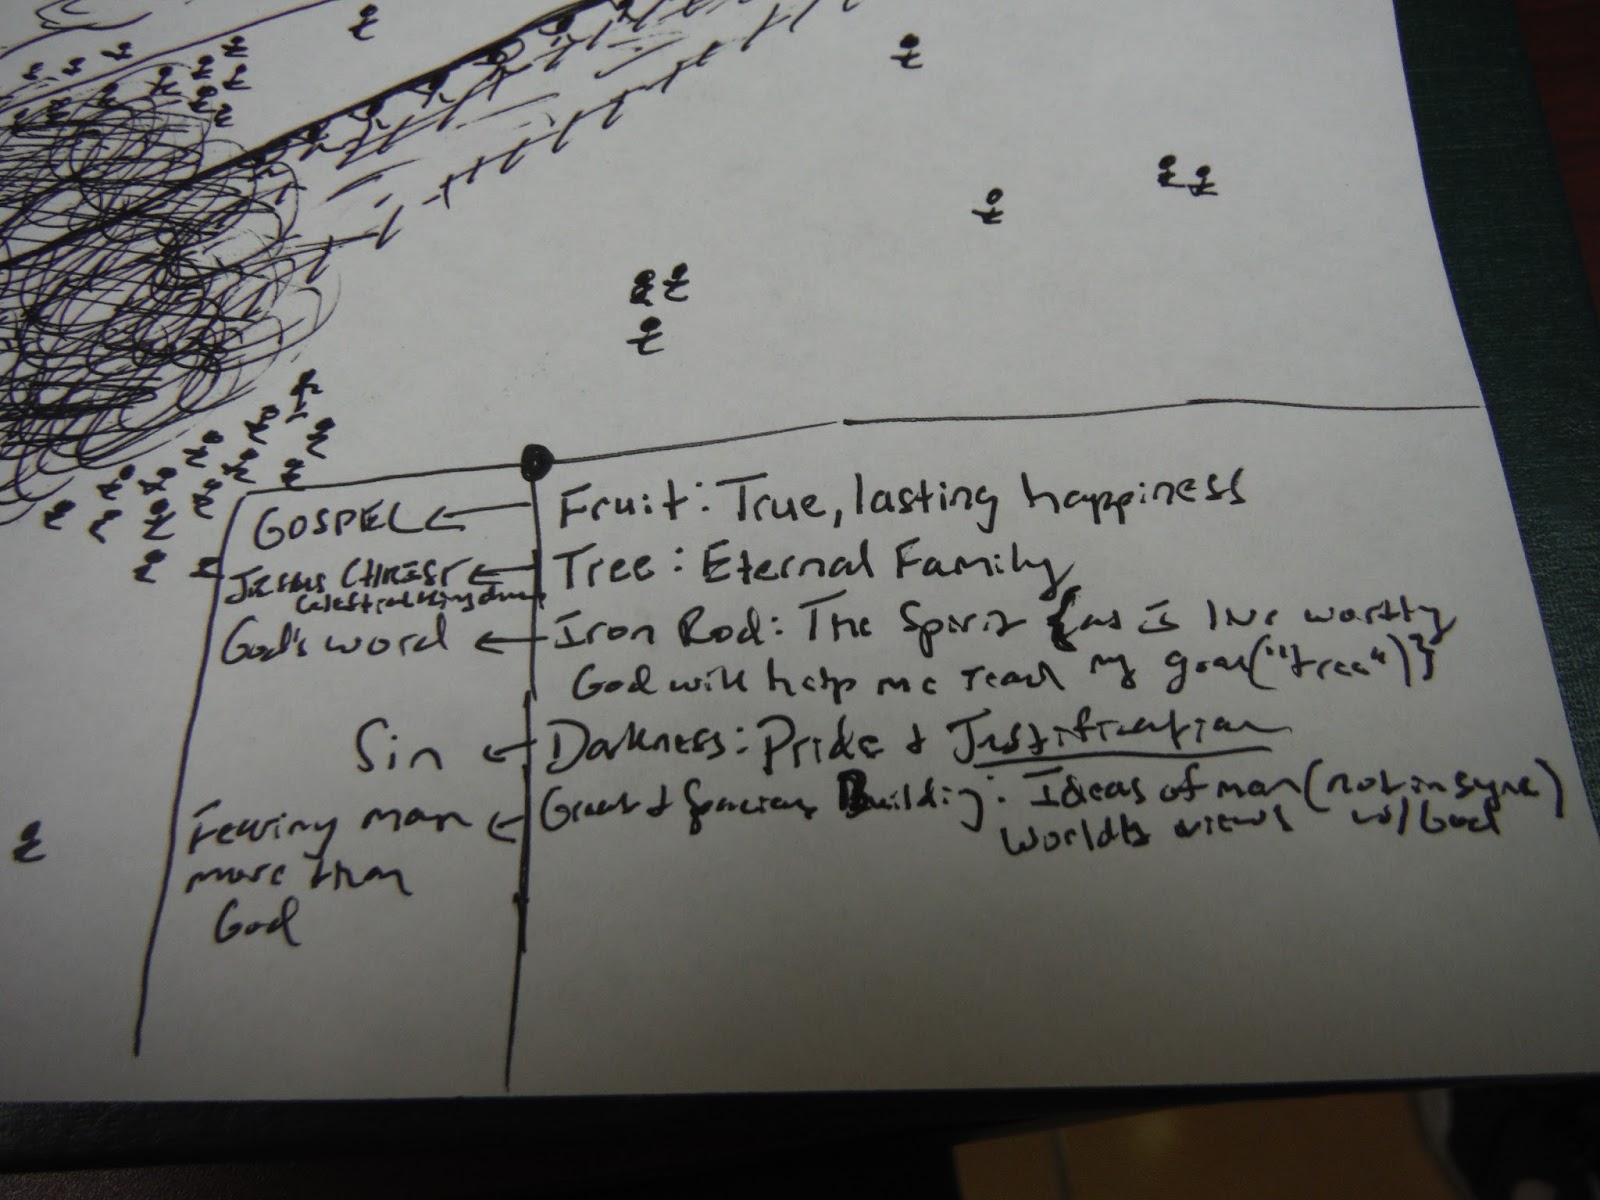 GOSPEL ← Fruit: True, lasting happiness
Jesus CHRIST ← Tree: Eternal Family
Celestial Kingdom
God's word ← Iron Rod: The Spirit {as I live worthy
God will help me reach my goal ("tree")}
Sin ← Darkness: Pride & Justification
Fearing man ← Great & Spacious Building: Ideas of man (not in sync)
more than worldly views w/ God
God